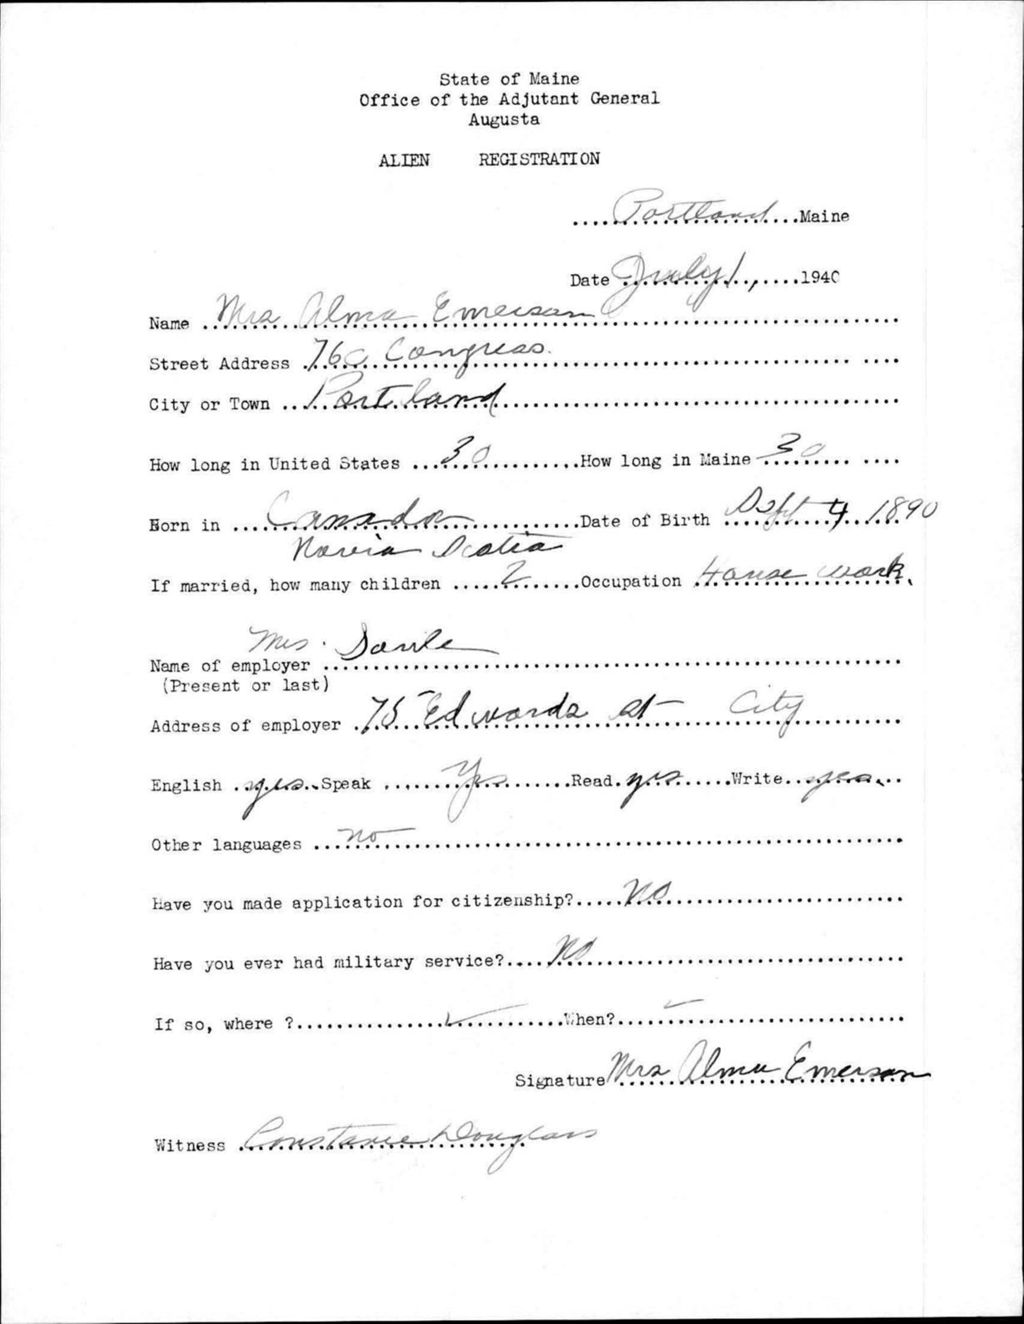 State of Maine
Office of the Adjutant General
Augusta
ALIEN REGISTRATION
Portland Maine
Date July 1, 1940
Name Mrs Alma Emerson
Street Address 760 Congress.
City or Town Portland
How long in United States 30 How long in Maine 30
Born in Canada Date of Birth Sept 4 1890
Novia Scotia
If married, how many children 2 Occupation House work.
Mrs.
Name of employer
(Present or last)
Address of employer 75 Edwards st City
English yes Speak Yes Read yes Write yes
Other languages no
Have you made application for citizenship? No
Have you ever had military service? No
If so, where ? When?
Signature Mrs Alma Emerson
Witness Constance Douglass